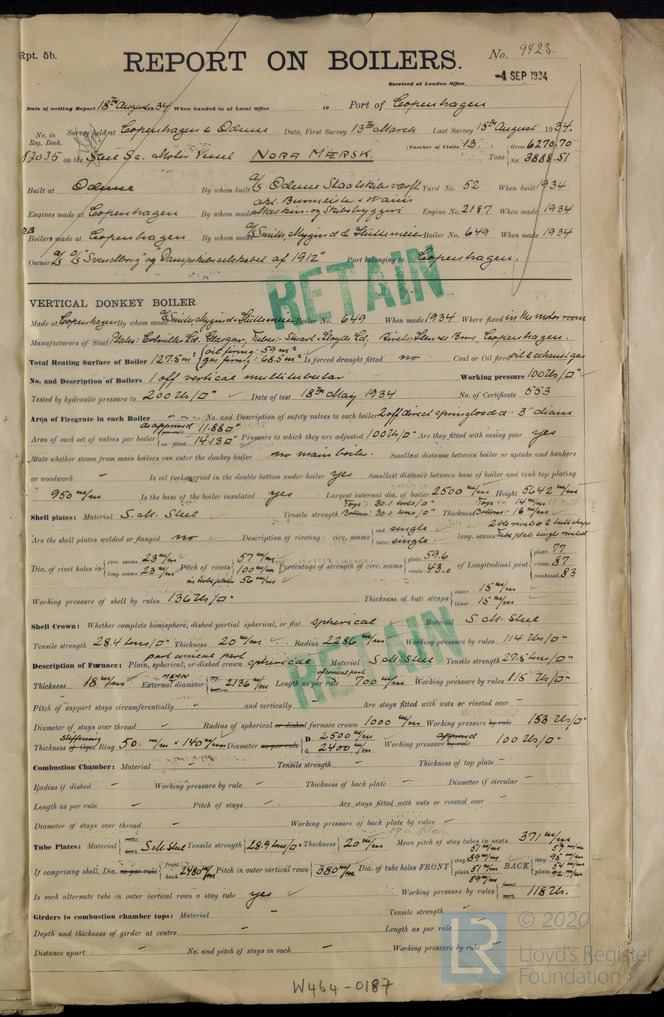 Rpt. 5b.
REPORT ON BOILERS.
No. 9423
Received at London Office -4 SEP 1934
Date of writing Report 18th August 1934 When handed in at Local Office 19 Port of Copenhagen
No. in Reg. Book. Survey held at Copenhagen & Odense Date, First Survey 13th March Last Survey 15th August 1934.
on the Steel Sc. Motor Vessel NORA MÆRSK (Number of Visits 13) Gross 6270.70
Tons Net 3888.51
Built at Odense By whom built A/S Odense Staalskibsværft Yard No. 52 When built 1934
Engines made at Copenhagen By whom made Akt. Burmeister & Wain's Maskin- og Skibsbyggeri Engine No. 2187 When made 1934
Boilers made at Copenhagen By whom made A/S Smith, Mygind & Hüttemeier Boiler No. 649 When made 1934
Owners A/S D/S "Svendborg" og Dampskibsselskabet af 1912" Port belonging to Copenhagen.
RETAIN
VERTICAL DONKEY BOILER.
Made at Copenhagen By whom made A/S Smith, Mygind & Hüttemeier Boiler No. 649 When made 1934 Where fixed in the motor room
Manufacturers of Steel Plates: Colvilles Ld, Glasgow, Tubes: Stewart & Lloyds Ld, Rivets: Bros, Copenhagen.
Total Heating Surface of Boiler 127.5 m² {oil firing: 59 m² gas firing: 68.5 m² Is forced draught fitted no Coal or Oil fired oil & exhaust gas
No. and Description of Boilers 1 off vertical multitubular Working pressure 100 lbs/□"
Tested by hydraulic pressure to 200 lbs/□" Date of test 18th May 1934 No. of Certificate 553
Area of Firegrate in each Boiler - No. and Description of safety valves to each boiler 2 off direct springloaded - 3" diam
Area of each set of valves per boiler {as approved 11.88□" as fitted 14.13□" Pressure to which they are adjusted 100 lbs/□" Are they fitted with easing gear yes
State whether steam from main boilers can enter the donkey boiler no main boiler. Smallest distance between boiler or uptake and bunkers
or woodwork - Is oil fuel carried in the double bottom under boiler yes Smallest distance between base of boiler and tank top plating
950 m/m Is the base of the boiler insulated yes Largest internal dia. of boiler 2500 m/m Height 5642 m/m
Shell plates: Material S.M. Steel Tensile strength Top: 30.1 tons/□" Bottom: 30.0 tons/□" Thickness Top: 14 m/m Bottom: 16 m/m
Are the shell plates welded or flanged no Description of riveting: circ. seams {end single inter. single long. seams
Dia. of rivet holes in {circ. seams 23 m/m long. seams 23 m/m Pitch of rivets {57 m/m 100 m/m in tube plates 56 m/m Percentage of strength of circ. seams {plate 59.6 rivets 43.0 of Longitudinal joint {plate 77 rivets 87 combined 83
Working pressure of shell by rules 136 lbs/□" Thickness of butt straps {outer 15 m/m inner 15 m/m
Shell Crown: Whether complete hemisphere, dished partial spherical, or flat spherical Material S.M. Steel
Tensile strength 28.4 tons/□" Thickness 20 m/m Radius 2286 m/m Working pressure by rules 114 lbs/□"
Description of Furnace: Plain, spherical, or dished crown part conical part spherical Material S.M. Steel Tensile strength 27.5 tons/□"
Thickness 18 m/m External diameter {MEAN 2136 m/m Length as per rule of conical part 700 m/m Working pressure by rules 115 lbs/□"
Pitch of support stays circumferentially - and vertically - Are stays fitted with nuts or riveted over -
Diameter of stays over thread - Radius of spherical or dished furnace crown 1000 m/m Working pressure by rule 153 lbs/□"
Thickness of Ogee Stiffening Ring 50 m/m × 140 m/m Diameter as per rule {D 2500 m/m d. 2400 m/m Working pressure by rule approved 100 lbs/□"
Combustion Chamber: Material - Tensile strength - Thickness of top plate -
Radius if dished - Working pressure by rule - Thickness of back plate - Diameter if circular -
Length as per rule - Pitch of stays - Are stays fitted with nuts or riveted over -
Diameter of stays over thread - Working pressure of back plate by rules -
Tube Plates: Material {front back S.M. Steel Tensile strength 28.9 tons/□" Thickness {20 m/m Mean pitch of stay tubes in nests 371 m/m
If comprising shell, Dia. as per rule {front back 2480 m/m Pitch in outer vertical rows {380 m/m Dia. of tube holes FRONT {stay 57 m/m 89 m/m plain 57 m/m 89 m/m BACK {stay 59 m/m 95 m/m plain 59 m/m 92 m/m
Is each alternate tube in outer vertical rows a stay tube yes Working pressure by rules {front back 118 lbs.
Girders to combustion chamber tops: Material - Tensile strength -
Depth and thickness of girder at centre - Length as per rule -
Distance apart - No. and pitch of stays in each - Working pressure by rule -
RETAIN
W464-0187
LR © 2020
Lloyd's Register
Foundation